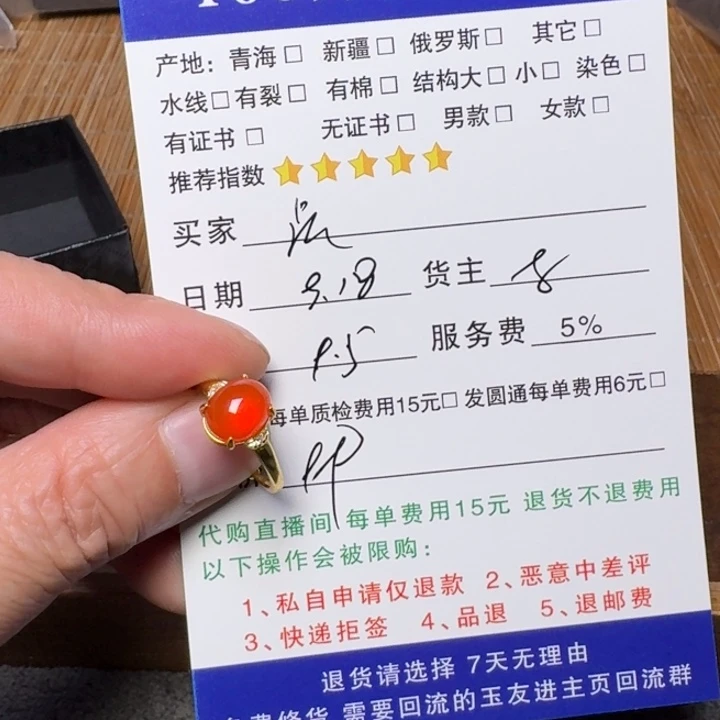 产地：青海□ 新疆□ 俄罗斯□ 其它□
水线□有裂□ 有棉□ 结构大□ 小□ 染色□
有证书□ 无证书□ 男款□ 女款□
推荐指数
买家
日期 9.18 货主
服务费 5%
每单质检费用15元□ 发圆通每单费用6元□
代购直播间 每单费用15元 退货不退费用
以下操作会被限购：
1、私自申请仅退款 2、恶意中差评
3、快递拒签 4、品退 5、退邮费
退货请选择 7天无理由
需要回流的玉友进主页回流群